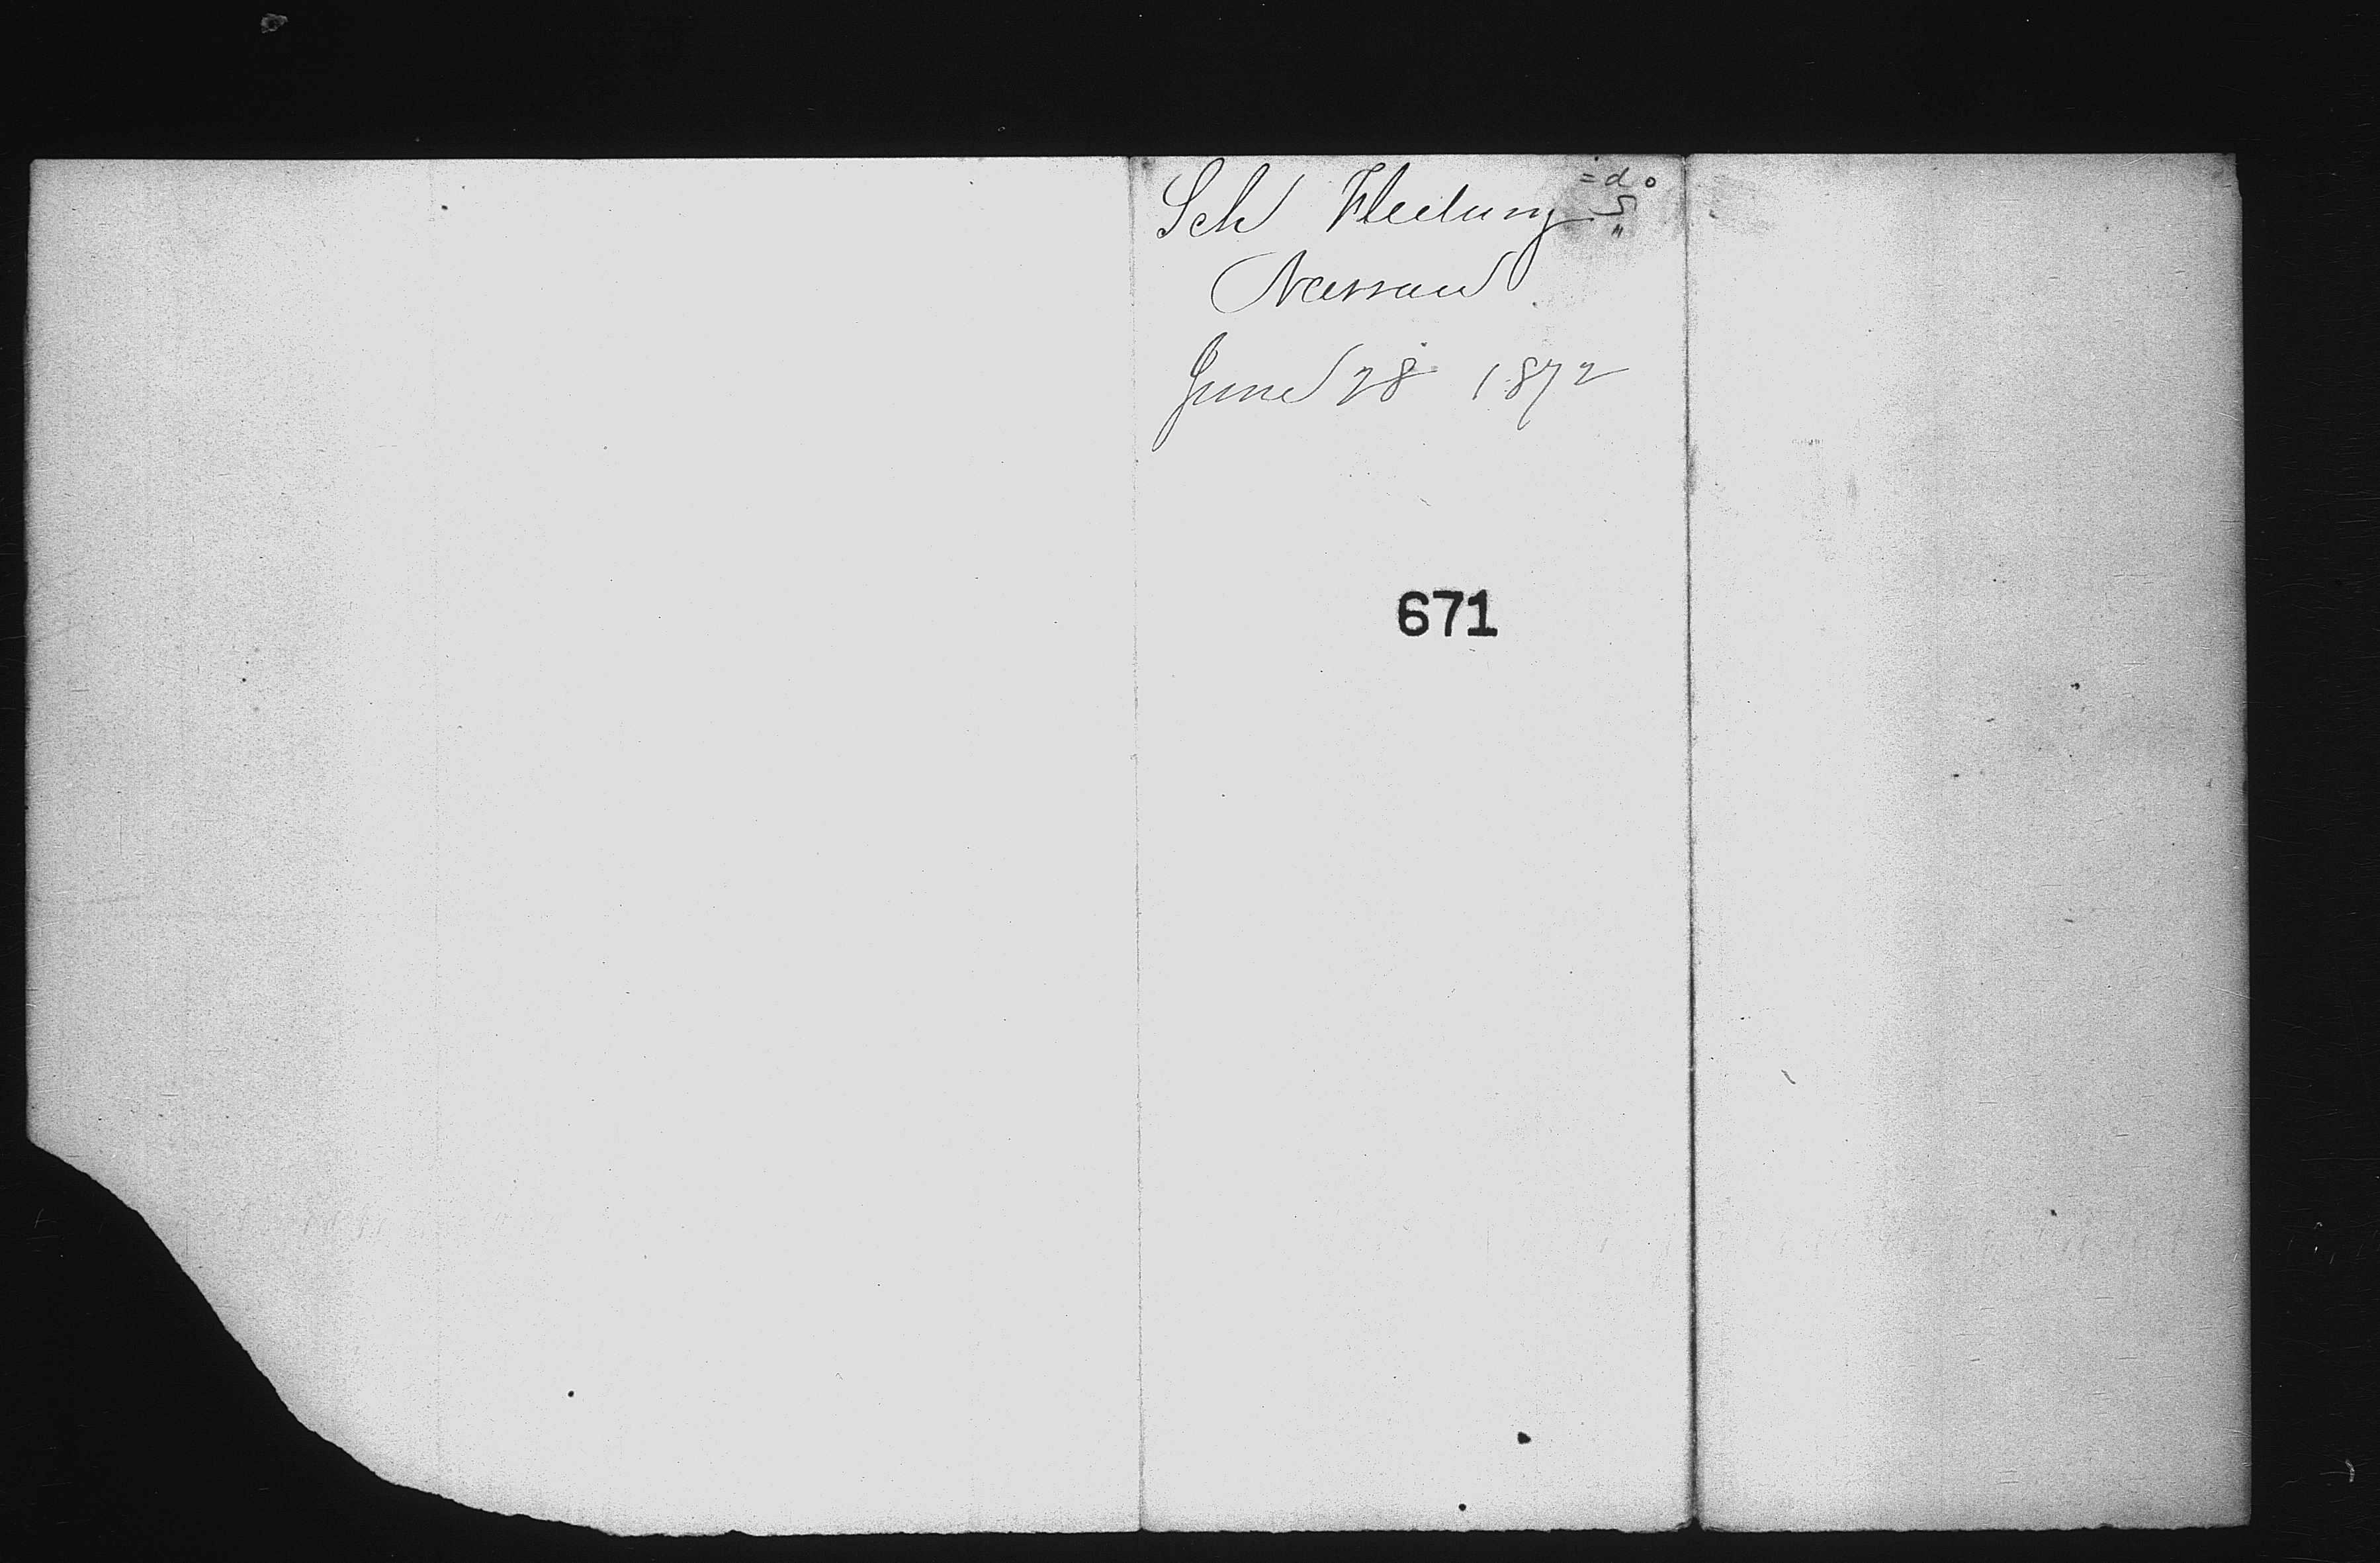 Sch Fleetwing
Nassau
June 28 1872
671